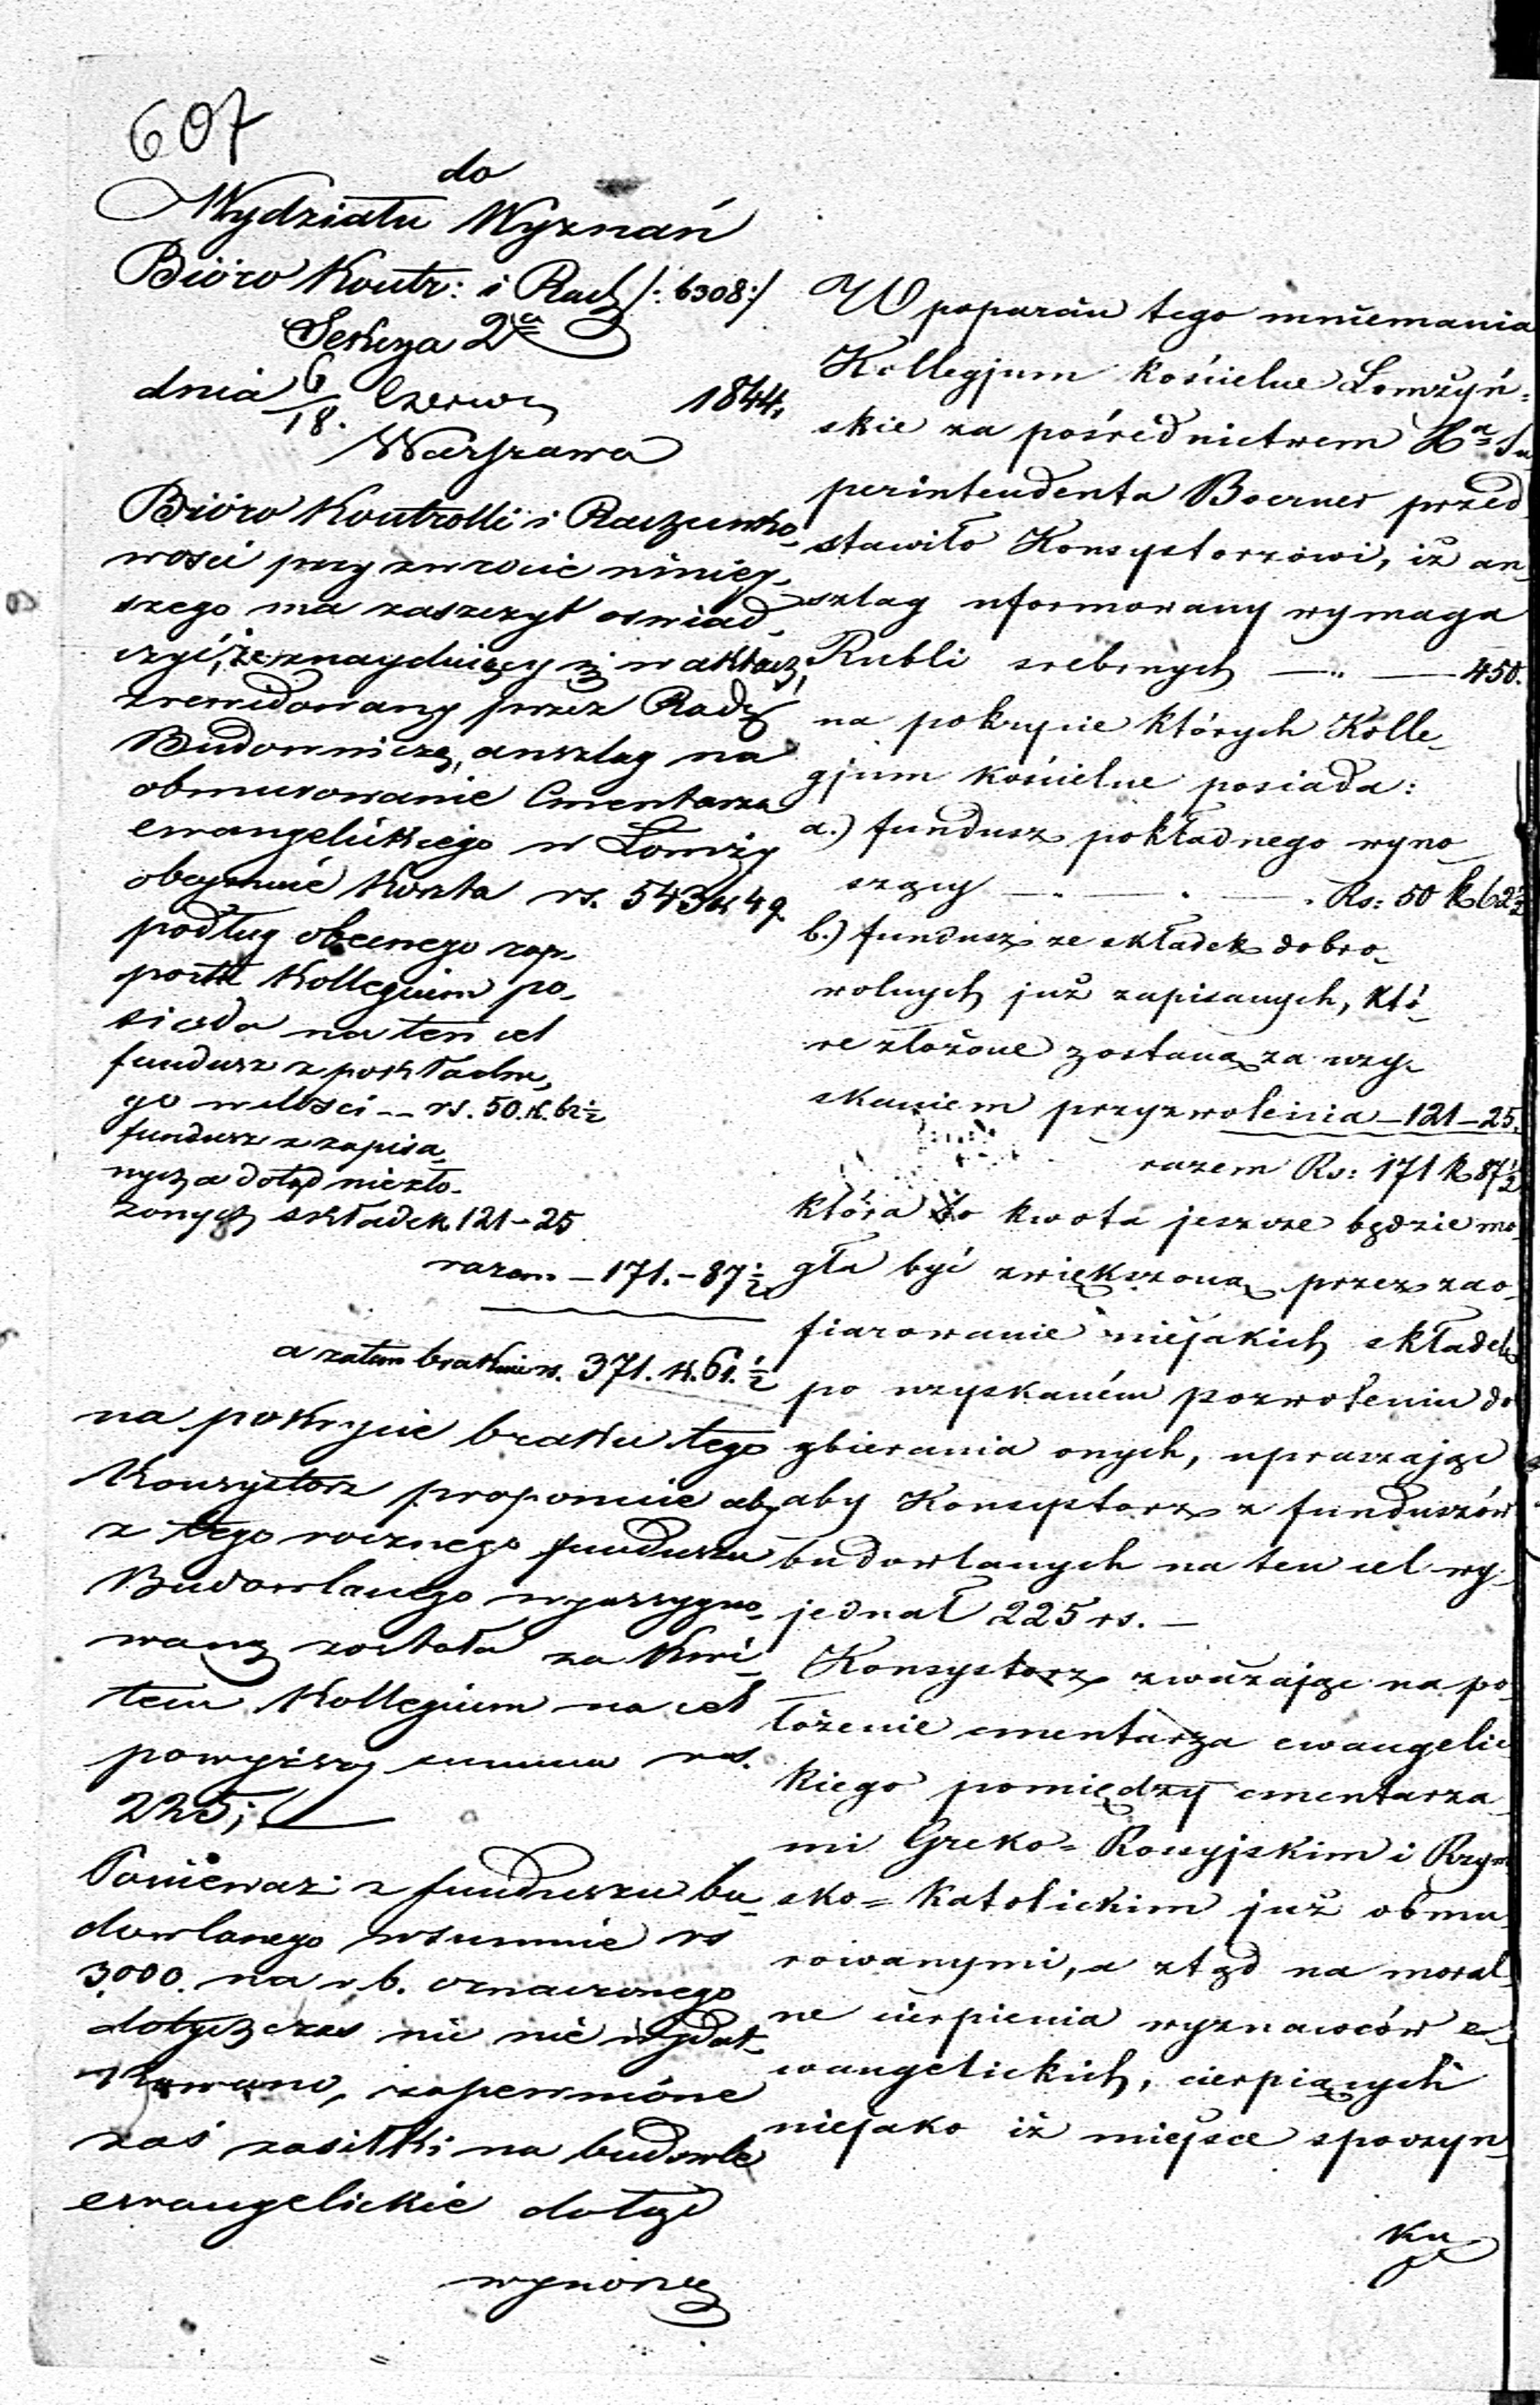 607
do
Wydziału Wyznań
Bióro Kontr: i Rach /: 6308:/
Sekcya 2ª
dnia 6/18. Czerwca 1844.
Warszawa
Bióro Kontrolli i Rachunko-
wości przy zwrocie niniey-
szego ma zaszczyt oswiad-
czyć, że znayduiący się w aktach,
zrewidowany przez Radę
Budowniczą, anszlag na
obmurowanie Cmentarza
ewangelickiego w Łomży
obeymuie koszta rs. 543 k 49.
podług obecnego rap-
portu Kollegium po-
siada na ten cel
fundusz z pokładne-
go w ilości -- rs. 50. k. 62½
fundusz z zapisa-
nych a dotąd niezło-
zonych składek 121-25
razem - 171. - 87½
a zatem brakuie rs. 371. k. 61.½
na pokrycie braku tego
Konsystorz proponuie aby
z tego rocznego funduszu
Budowlanego wyassygno-
waną została za kwi-
tem Kollegium na cel
powyższy summa rs.
225;
Ponieważ z funduszu bu-
dowlanego w summie rs
3000. na r. b. oznaczonego
dotychczas nic nie wydat-
kowano, zapewnione
zaś zasiłki na budowle
ewangelickie dotąd
wynoszą
W poparciu tego mniemania
Kollegjum kościelne Łomżyń-
skie za pośrednictwem Xª Su
perintendenta Boerner przed
stawiło Konsystorzowi, iż an-
szlag uformowany wymaga
Rubli srebrnych — " — 450.
na pokrycie których Kolle-
gjum kościelne posiada:
a.) fundusz pokładnego wyno-
szący — . — . Rs: 50 k 62½
b.) fundusz ze składek dobro-
wolnych już zapisanych, któ-
re złożone zostaną za uzy-
skaniem przyzwolenia - 121 - 25.
razem Rs: 171 k 87½
która to kwota jeszcze będzie mo-
gła być zwiększoną przez zao-
fiarowanie niejakich składek
po uzyskaném pozwoleniu do
zbierania onych, upraszając
aby Konsystorz z funduszów
budowlanych na ten cel wy-
jednał 225 rs. —
Konsystorz zważając na po-
łożenie cmentarza ewangelic
kiego pomiędzy cmentarza-
mi Greko=Rossyjskim i Rzym
sko=Katolickim już obmu-
rowanymi, a ztąd na moral-
ne cierpienia wyznawców e-
wangelickich, cierpiących
niejako iż miejsce spoczyn-
ku